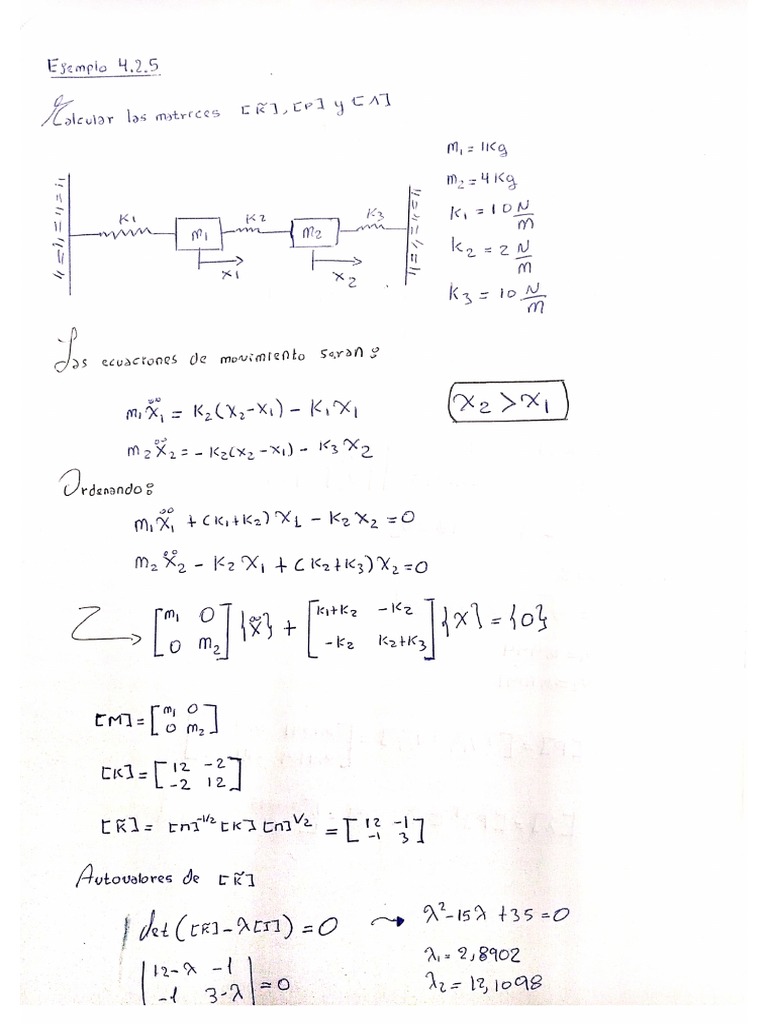 Ejemplo 4.2.5
Calcular las matrices [K̃], [P] y [Λ]
m₁ = 1Kg
m₂ = 4Kg
K₁ = 10 N/m
K₂ = 2 N/m
K₃ = 10 N/m
K₁ m₁ K₂ m₂ K₃
x₁ x₂
Las ecuaciones de movimiento seran:
m₁ẍ₁ = K₂(x₂-x₁) - K₁x₁
x₂ > x₁
m₂ẍ₂ = -K₂(x₂-x₁) - K₃x₂
Ordenando:
m₁ẍ₁ + (K₁+K₂)x₁ - K₂x₂ = 0
m₂ẍ₂ - K₂x₁ + (K₂+K₃)x₂ = 0
[m₁ 0; 0 m₂]{ẍ} + [K₁+K₂ -K₂; -K₂ K₂+K₃]{x} = {0}
[M] = [m₁ 0; 0 m₂]
[K] = [12 -2; -2 12]
[K̃] = [M]^-1/2 [K] [M]^1/2 = [12 -1; -1 3]
Autovalores de [K̃]
det([K̃] - λ[I]) = 0 → λ² - 15λ + 35 = 0
|12-λ -1; -1 3-λ| = 0
λ₁ = 2,8902
λ₂ = 12,1098